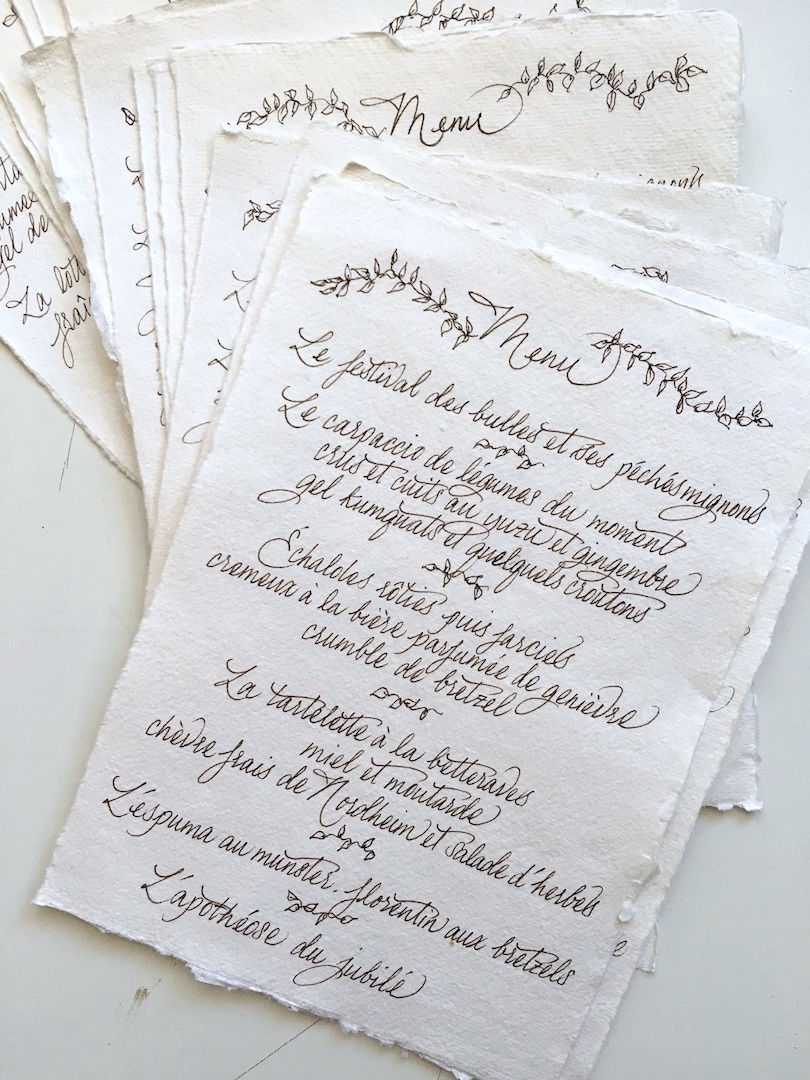 Menu
Menu
Le festival des bulles et ses péchés mignons
Le carpaccio de légumes du moment
crus et cuits au yuzu et gingembre
gel kumquats et quelques croûtons
Échalotes rôties puis farcies
cremeux à la bière parfumée de genièvre
crumble de bretzel
La tartelette à la betteraves
miel et moutarde
chèvre frais de Nordheim et salade d'herbes
L'espuma au munster, florentin aux bretzels
L'apothéose du jubilé